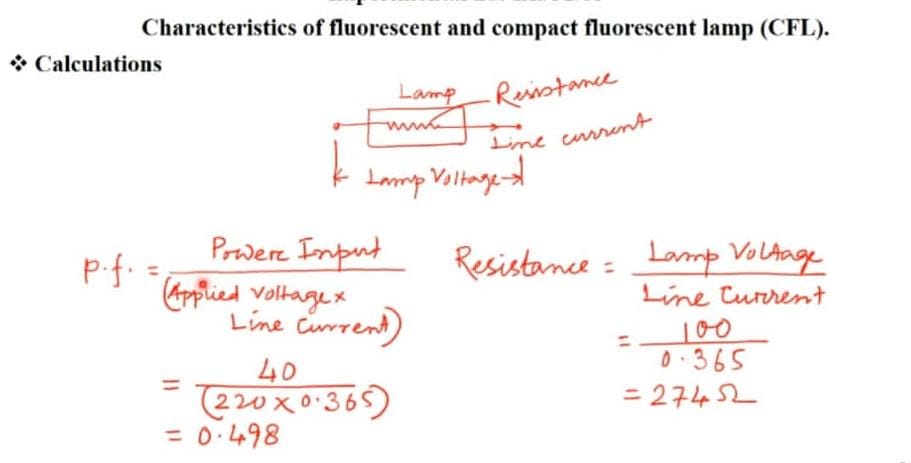 Characteristics of fluorescent and compact fluorescent lamp (CFL).
❖ Calculations
Lamp Resistance
Line current
Lamp Voltage
p.f. = Power Input / (Applied Voltage x Line Current)
= 40 / (220 x 0.365)
= 0.498
Resistance = Lamp Voltage / Line Current
= 100 / 0.365
= 274 Ω